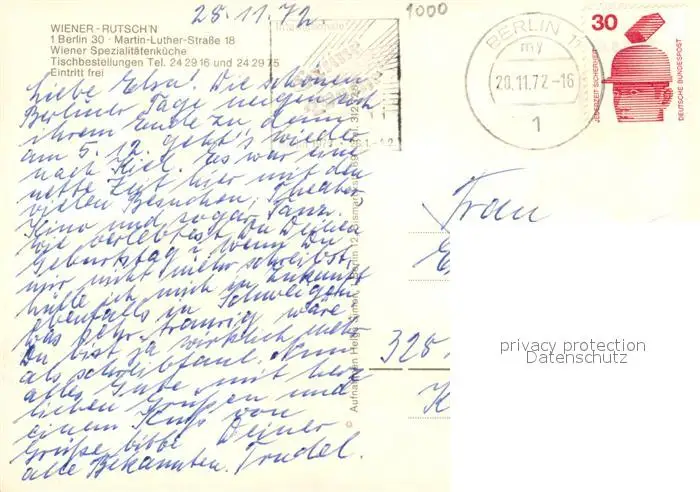 28.11.72
1000
WIENER-RUTSCH'N
1 Berlin 30 · Martin-Luther-Straße 18
Wiener Spezialitätenküche
Tischbestellungen Tel. 24 29 16 und 24 29 75
Eintritt frei
Liebe Elsa! Die schönen
Berliner Tage neigen sich
ihrem Ende zu denn
am 5.12. geht's wieder
nach Kiel. Es war eine
nette Zeit hier mit den
vielen Besuchen, Theater
Kino und sogar Tanz.
Wie verlebtest Du Deinen
Geburtstag? Wenn Du
mir nicht mehr schreibst,
hülle ich mich in Zukunft
ebenfalls in Schweigen,
was sehr traurig wäre
Du bist ja wirklich mehr
als schreibfaul. Nun
alles Gute mit herz-
lichen Grüßen und
einem Kuß von
Deiner
alte Bekannten. Trudel.
BERLIN 11
my
28.11.72-16
1
30
JEDERZEIT SICHERHEIT
DEUTSCHE BUNDESPOST
Frau
325
K
privacy protection
Datenschutz